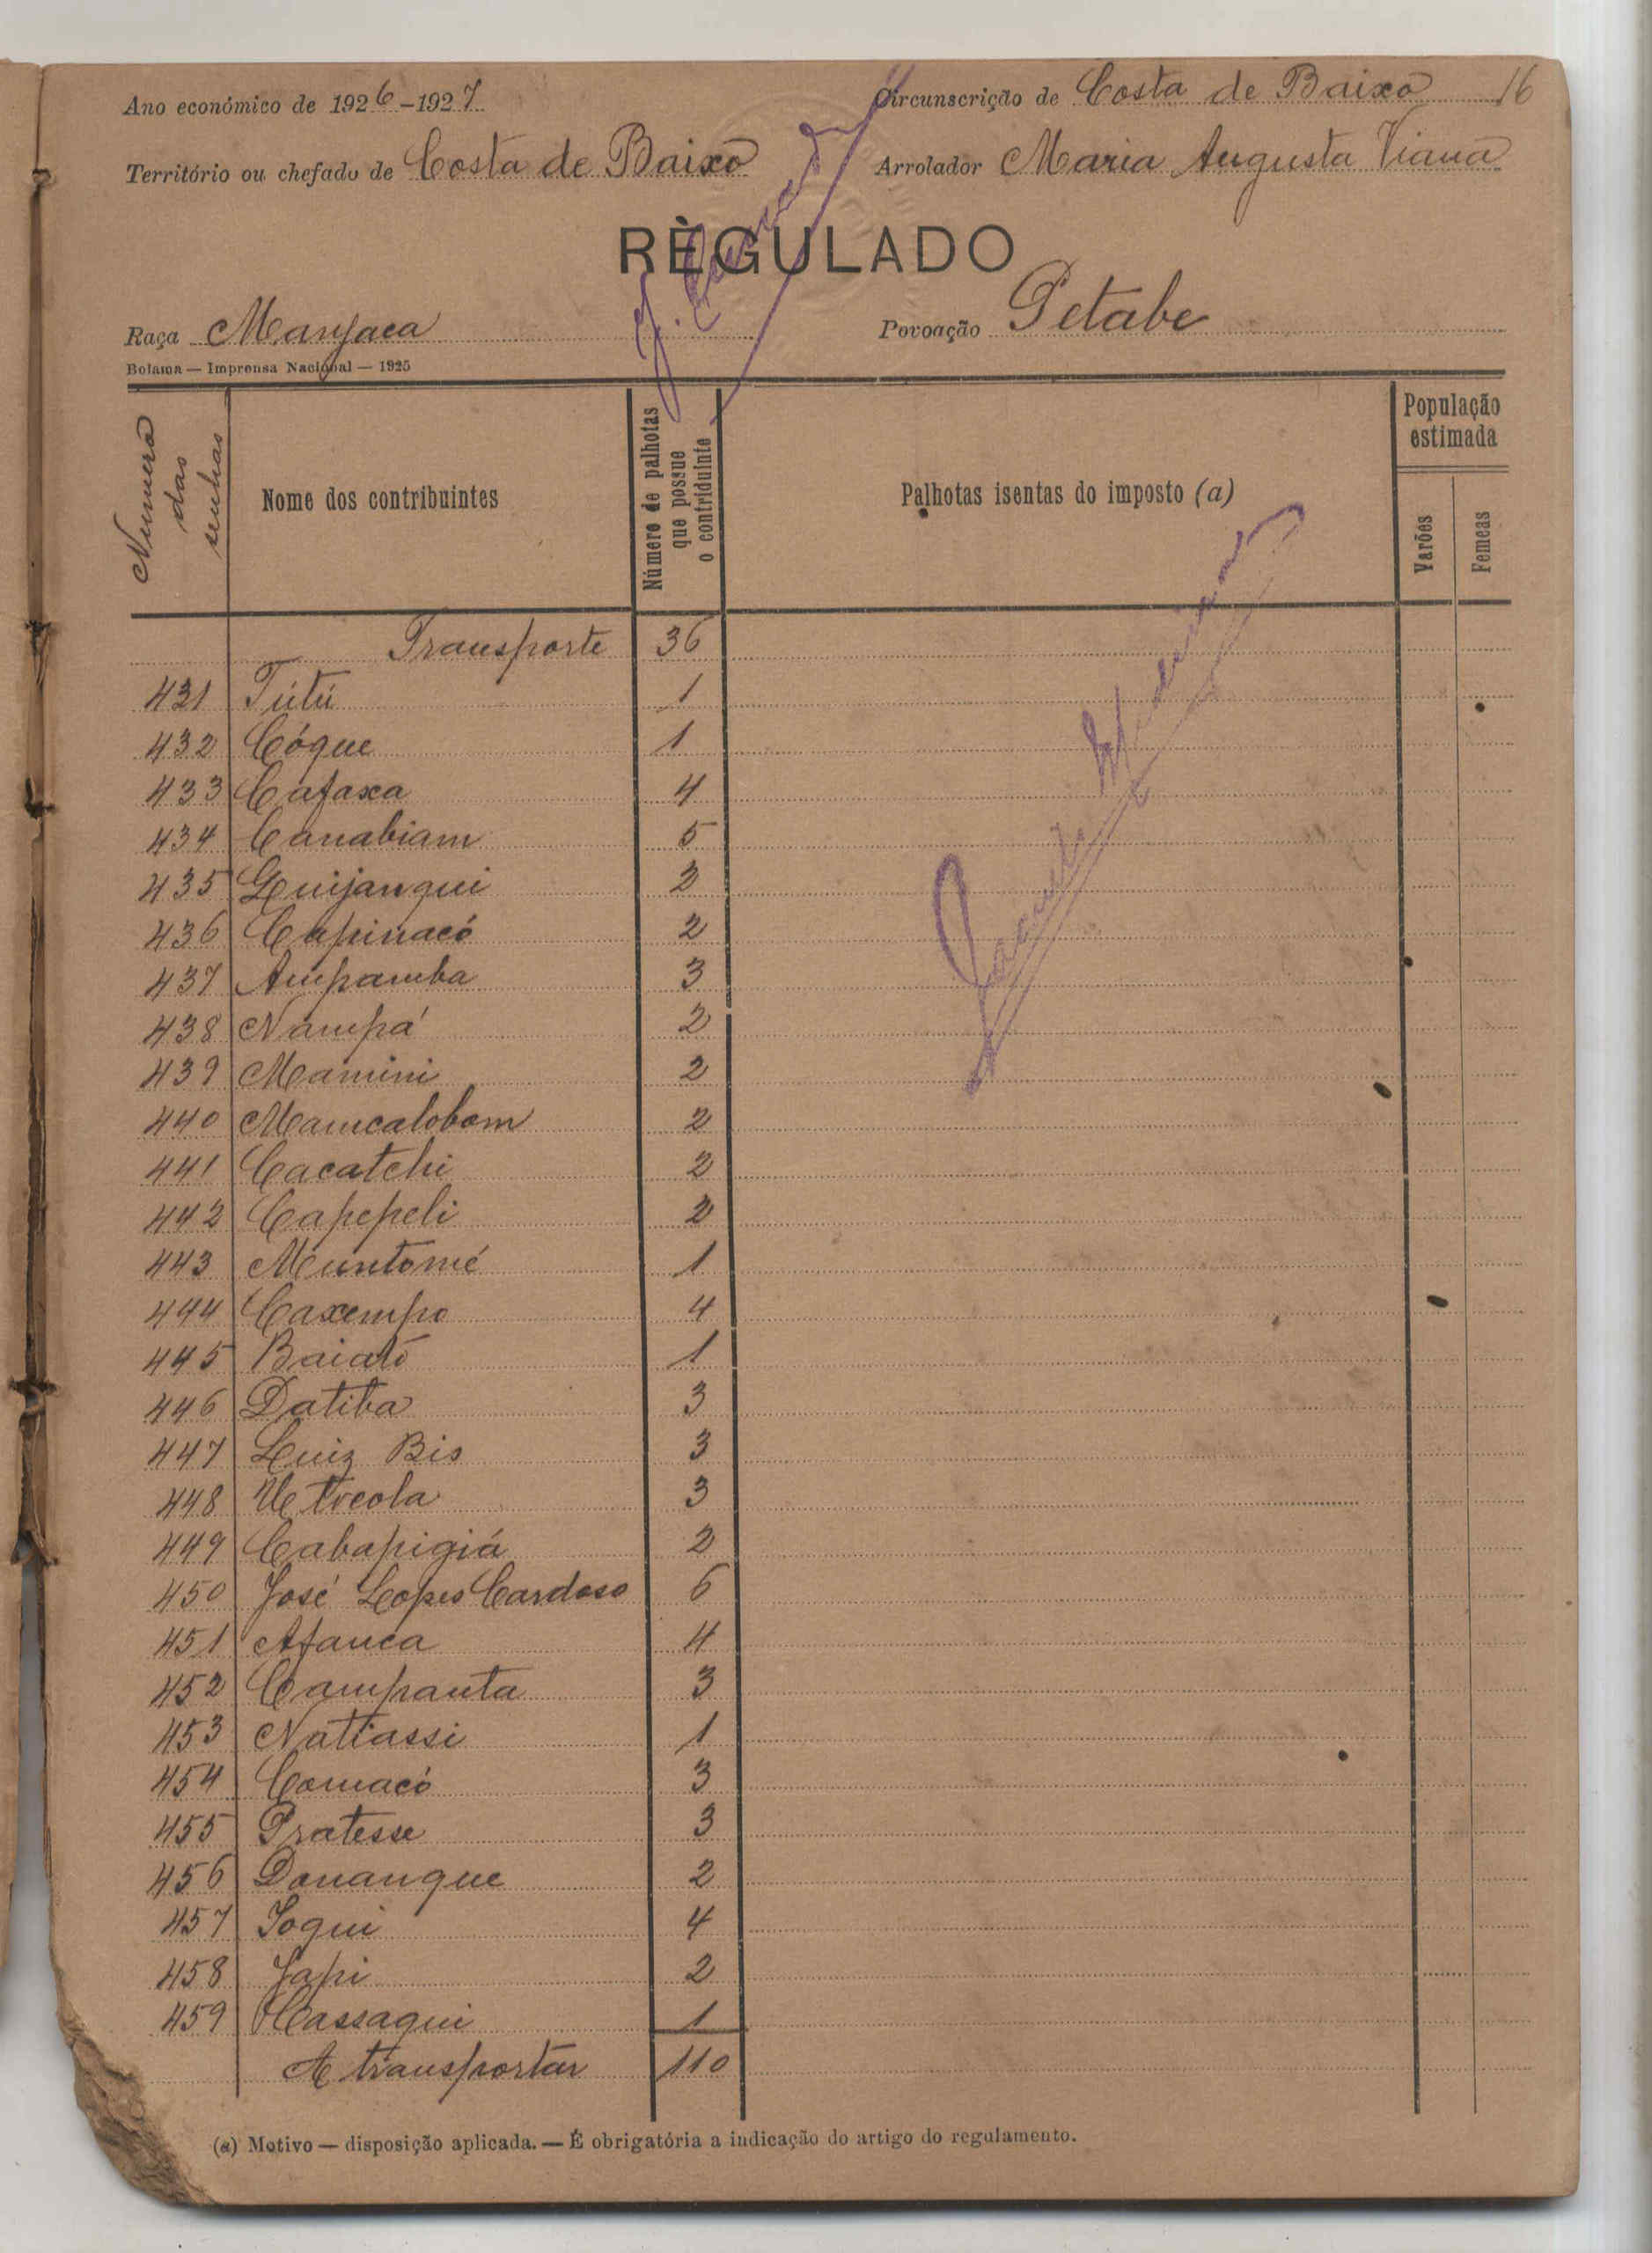 Ano económico de 1926-1927 Circunscrição de Costa de Baixo 16
Território ou chefado de Costa de Baixo Arrolador Maria Augusta Viana
RÈGULADO
Raça Manjaca Povoação Petabe
Bolama — Imprensa Nacional — 1925
Numero das senhas Nome dos contribuintes Número de palhotas que possue o contriduinte Palhotas isentas do imposto (a) População estimada Varões Femeas
Transporte 36
431 Tútú 1
432 Cóque 1
433 Cafaxa 4
434 Canabiam 5
435 Quijanqui 2
436 Capinacó 2
437 Ampamba 3
438 Nampá 2
439 Mamini 2
440 Mamcalobom 2
441 Cacatchi 2
442 Capepeli 2
443 Muntomé 1
444 Caxempo 4
445 Baialó 1
446 Datiba 3
447 Luiz Bis 3
448 Utreola 3
449 Cabapigiá 2
450 José Lopes Cardoso 6
451 Afanca 4
452 Campanta 3
453 Natiassi 1
454 Comacó 3
455 Pratesse 3
456 Donanque 2
457 Ioqui 4
458 Japi 2
459 Cassaqui 1
A transportar 110
(a) Motivo — disposição aplicada. — É obrigatória a indicação do artigo do regulamento.